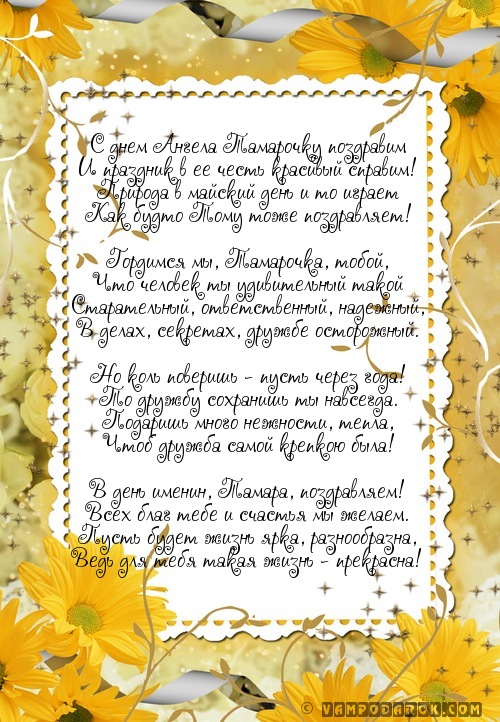 С днем Ангела Тамарочку поздравим
И праздник в ее честь красивый справим!
Природа в майский день и то играет
Как будто Тому тоже поздравляет!
Гордимся мы, Тамарочка, тобой,
Что человек ты удивительный такой
Старательный, ответственный, надежный,
В делах, секретах, дружбе осторожный.
Но коль поверишь - пусть через года!
То дружбу сохранишь ты навсегда.
Подаришь много нежности, тепла,
Чтоб дружба самой крепкою была!
В день именин, Тамара, поздравляем!
Всех благ тебе и счастья мы желаем.
Пусть будет жизнь ярка, разнообразна,
Ведь для тебя такая жизнь - прекрасна!
© VAMPODAROK.COM